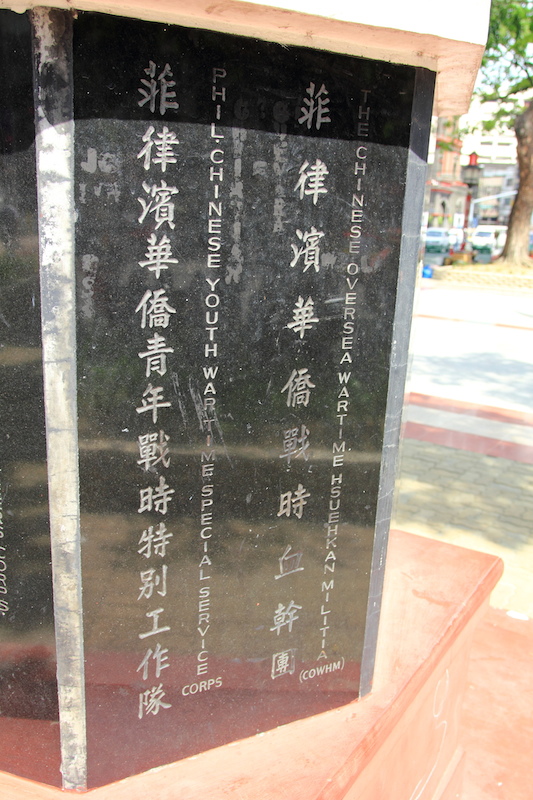 THE CHINESE OVERSEA WARTIME HSUEHKAN MILITIA
(COWHM)
菲律濱華僑戰時血幹團
PHIL. CHINESE YOUTH WARTIME SPECIAL SERVICE
CORPS
菲律濱華僑青年戰時特別工作隊
CORPS.